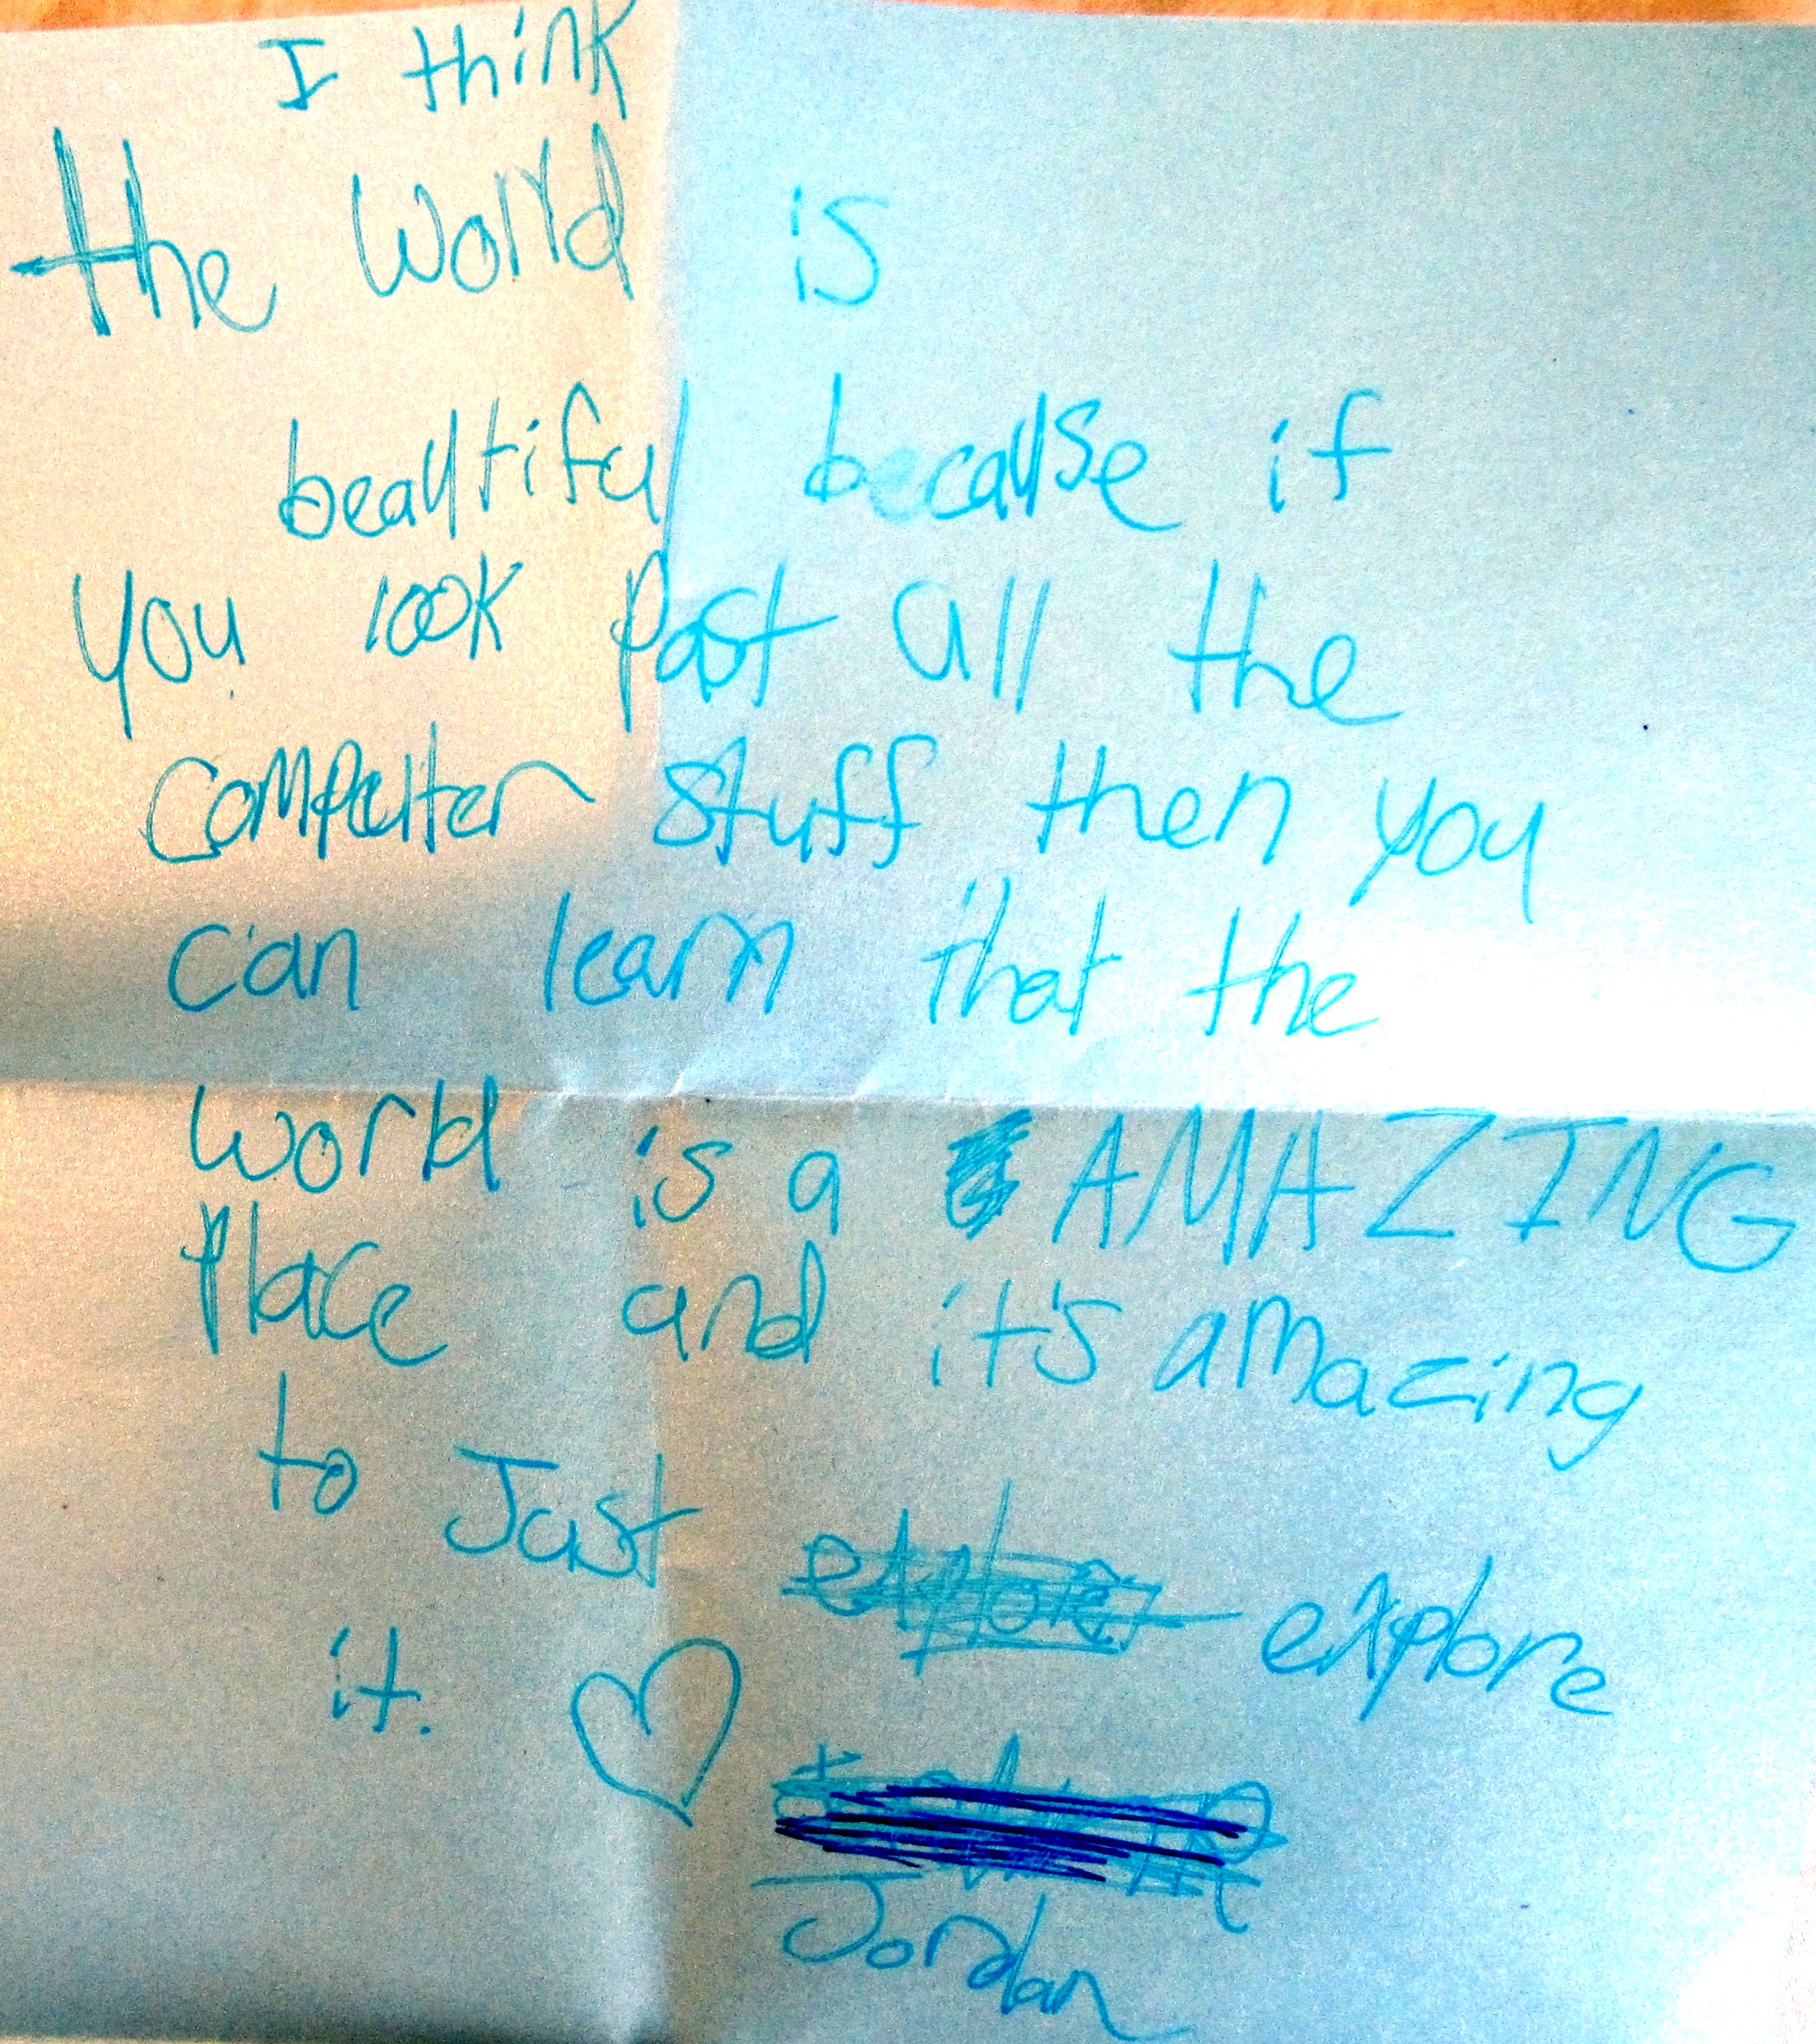 I think
the world is
beautiful because if
you look past all the
computer stuff then you
can learn that the
world is a AMAZING
place and it's amazing
to Just explore explore
it.
Jordan